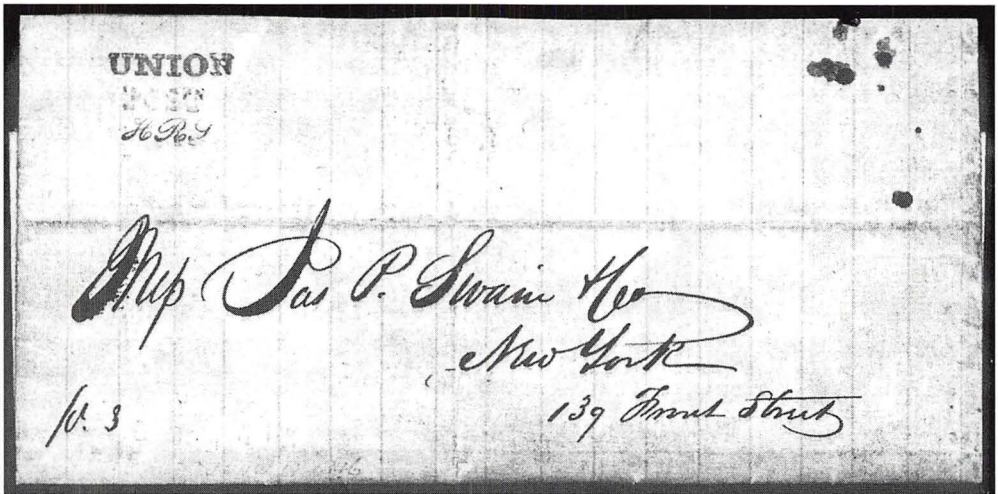 UNION
POST
HRS
Mess Jas P. Swain & Co
New York
139 Front Street
pd. 3